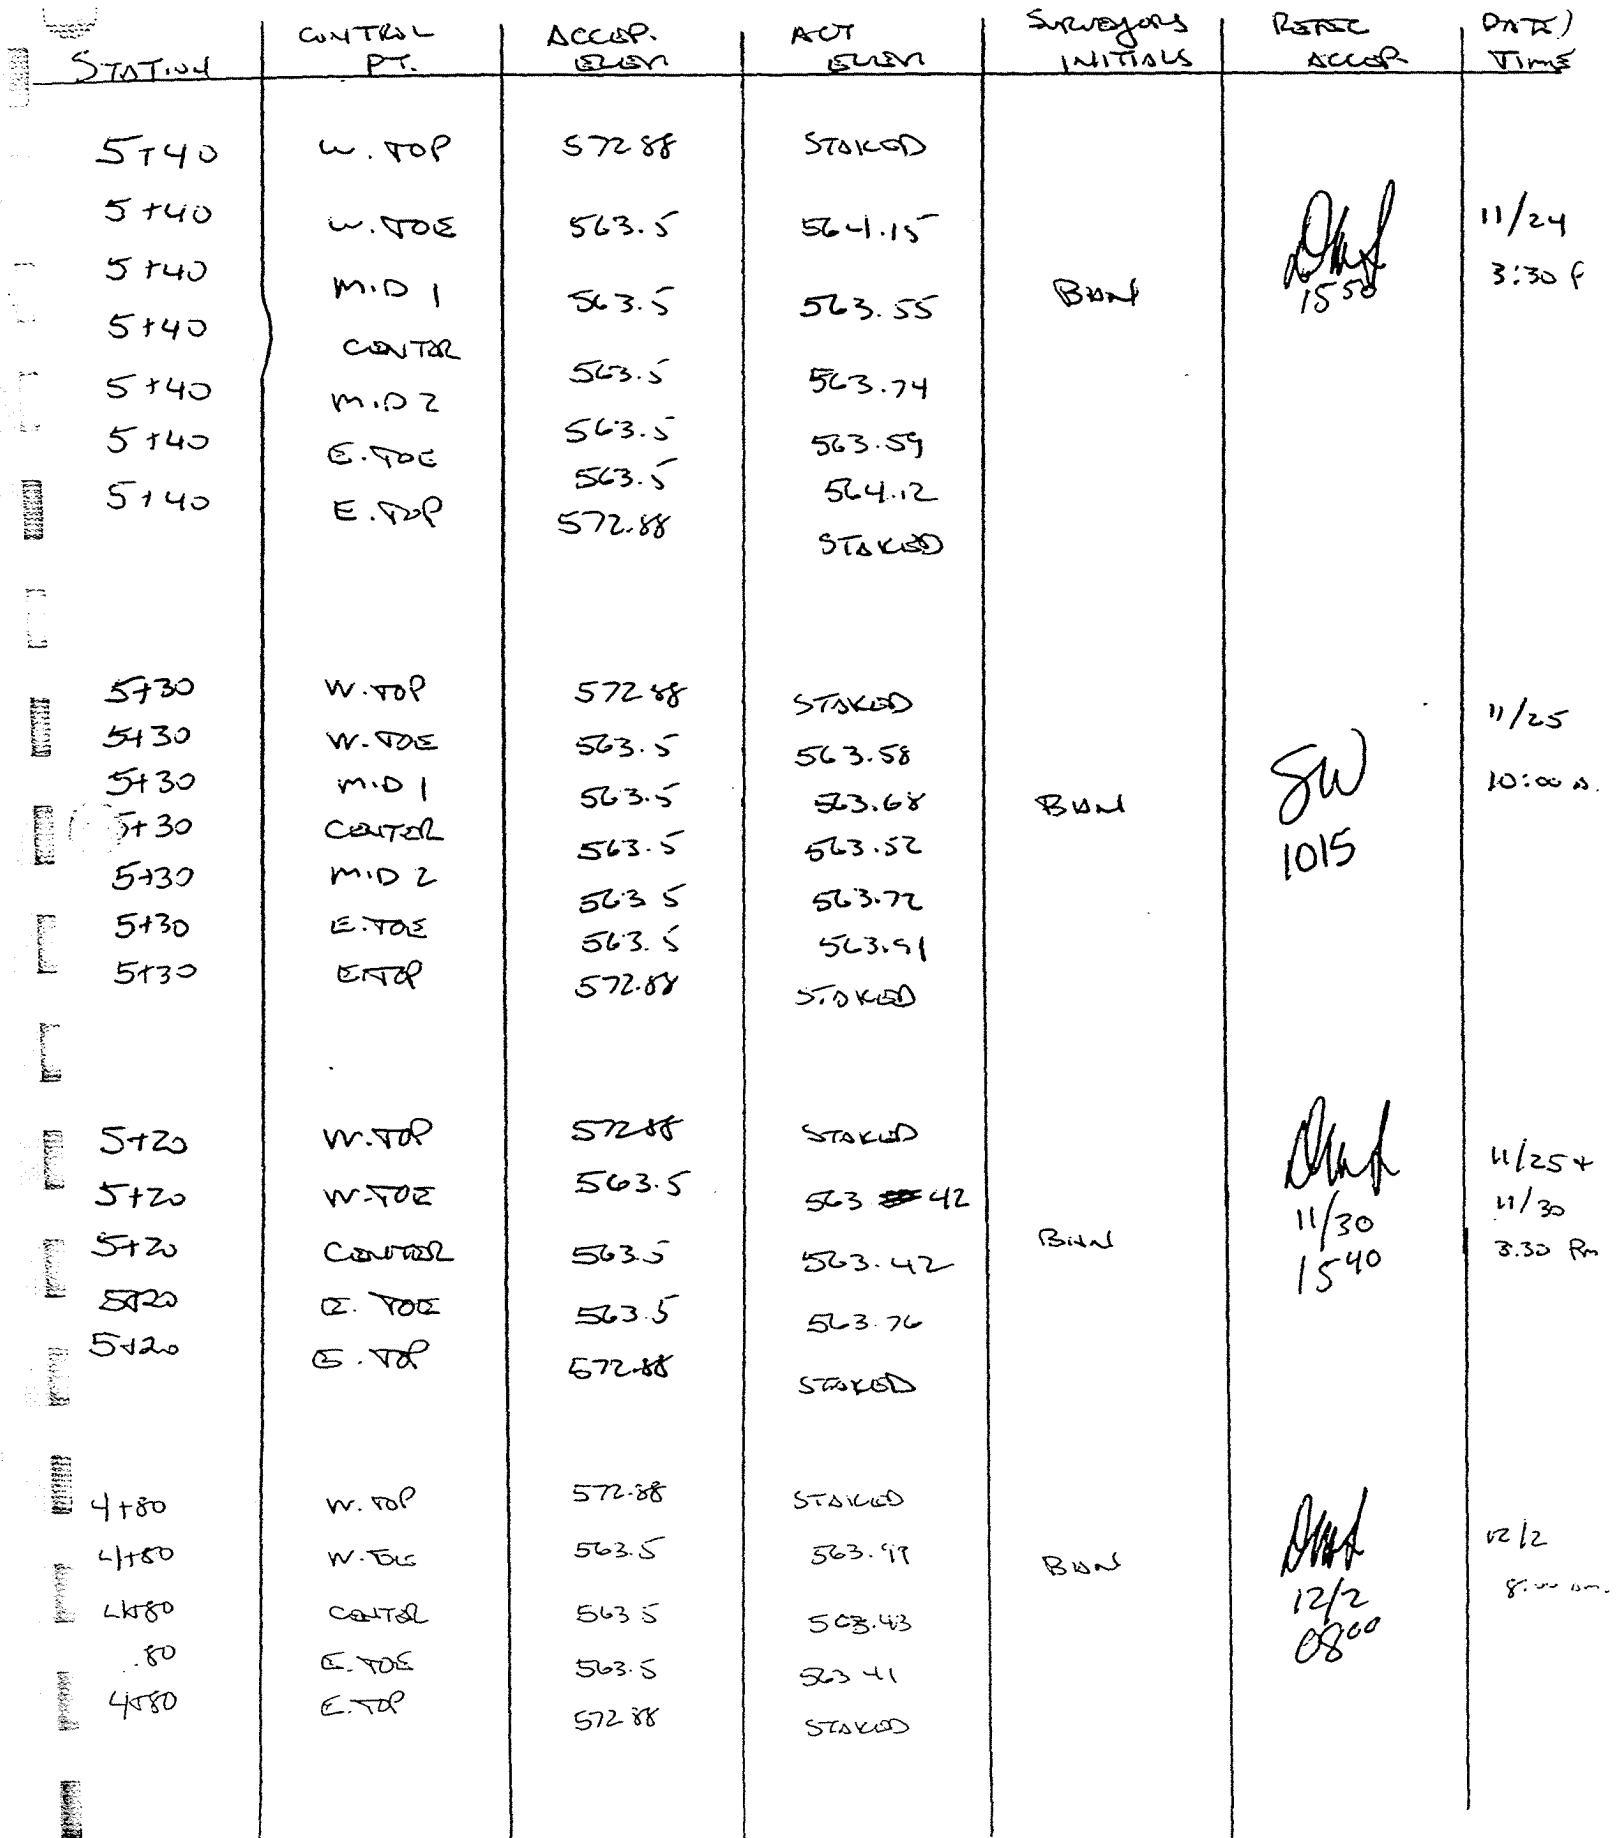 STATION | CONTROL PT. | ACCEP. ELEV | ACT ELEV | SURVEYORS INITIALS | RETEC ACCEP. | DATE/ TIME
5+40 | W. TOP | 572.88 | STAKED
5+40 | W. TOE | 563.5 | 564.15 | 11/24
5+40 | MID 1 | 563.5 | 563.55 | BWN | 1550 | 3:30 P
5+40 | CENTER | 563.5 | 563.74
5+40 | MID 2 | 563.5 | 563.59
5+40 | E. TOE | 563.5 | 564.12
5+40 | E. TOP | 572.88 | STAKED
5+30 | W. TOP | 572.88 | STAKED | 11/25
5+30 | W. TOE | 563.5 | 563.58 | SW
5+30 | MID 1 | 563.5 | 563.68 | BWN | 10:00 A.
5+30 | CENTER | 563.5 | 563.52 | 1015
5+30 | MID 2 | 563 5 | 563.72
5+30 | E. TOE | 563.5 | 563.91
5+30 | E. TOP | 572.88 | STAKED
5+20 | W. TOP | 572.88 | STAKED | 11/25 +
5+20 | W. TOE | 563.5 | 563 42 | 11/30 | 11/30
5+20 | CENTER | 563.5 | 563.42 | BWN | 1540 | 3:30 Pm
5+20 | E. TOE | 563.5 | 563.76
5+20 | E. TOP | 572.88 | STAKED
4+80 | W. TOP | 572.88 | STAKED
4+80 | W. TOE | 563.5 | 563.99 | BWN | 12/2
4+80 | CENTER | 563 5 | 563.43 | 12/2 | 8:00 am.
80 | E. TOE | 563.5 | 563 41 | 0800
4+80 | E. TOP | 572 88 | STAKED